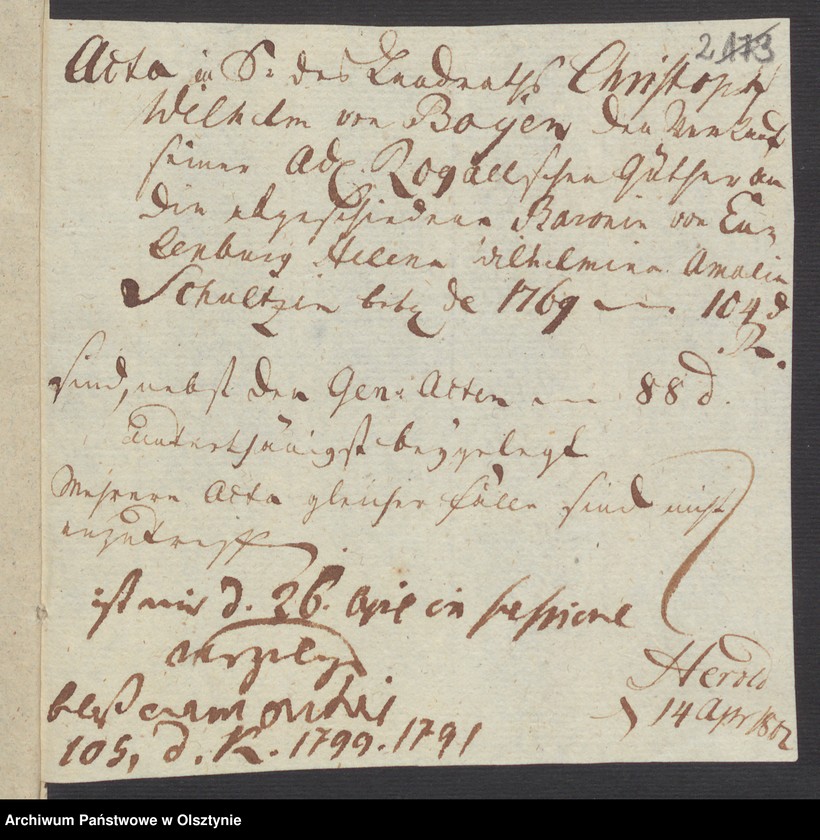 2 173
Acta in S. des Landraths Christoph
Wilhelm von Boyen den Verkauf
seiner Adl. Rogallschen Güther an
die abgeschiedene Baronin von Eu-
lenburg Helena Wilhelmina Amalia
Schultzin betr. de 1769 104 d
R.
sind, nebst den Gen: Acten 88 d.
unterthänigst beygelegt
Mehrere Acta gleicher Fälle sind nicht
anzutreffen.
ist mir d. 26. April in sessione
vorgelegt
Herold
14 Apr 1802
105, d. R. 1799. 1791
Archiwum Państwowe w Olsztynie